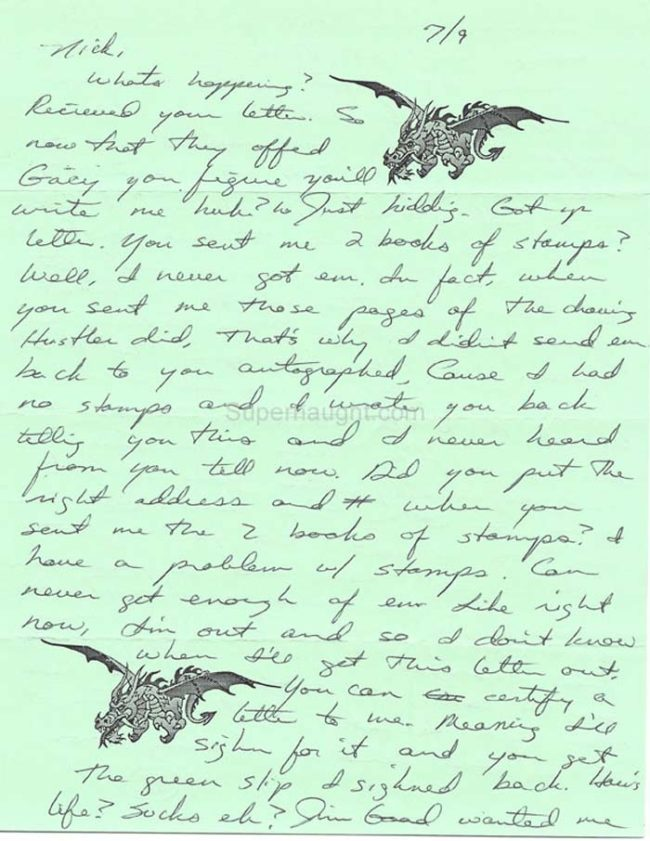 7/9
Nick,
Whats happening?
Recieved your letter. So
now that they offed
Gacy you figure you'll
write me huh? Just kiddig. Got yr
letter. You sent me 2 books of stamps?
Well, I never got em. In fact, when
you sent me those pages of the drawing
Hustler did, That's why I did'nt send em
back to you autographed, Cause I had
no stamps and I wrote you back
Supernaught.com
tellig you this and I never heard
from you tell now. Did you put the
right address and # when you
sent me the 2 books of stamps? I
have a problem w/ stamps. Can
never get enough of em. Like right
now, I'm out and so I don't know
when I'll get this letter out.
You can certify a
letter to me. Meaning I'll
sighn for it and you get
the green slip I sighned back. How's
life? Sucks eh? Jim wanted me